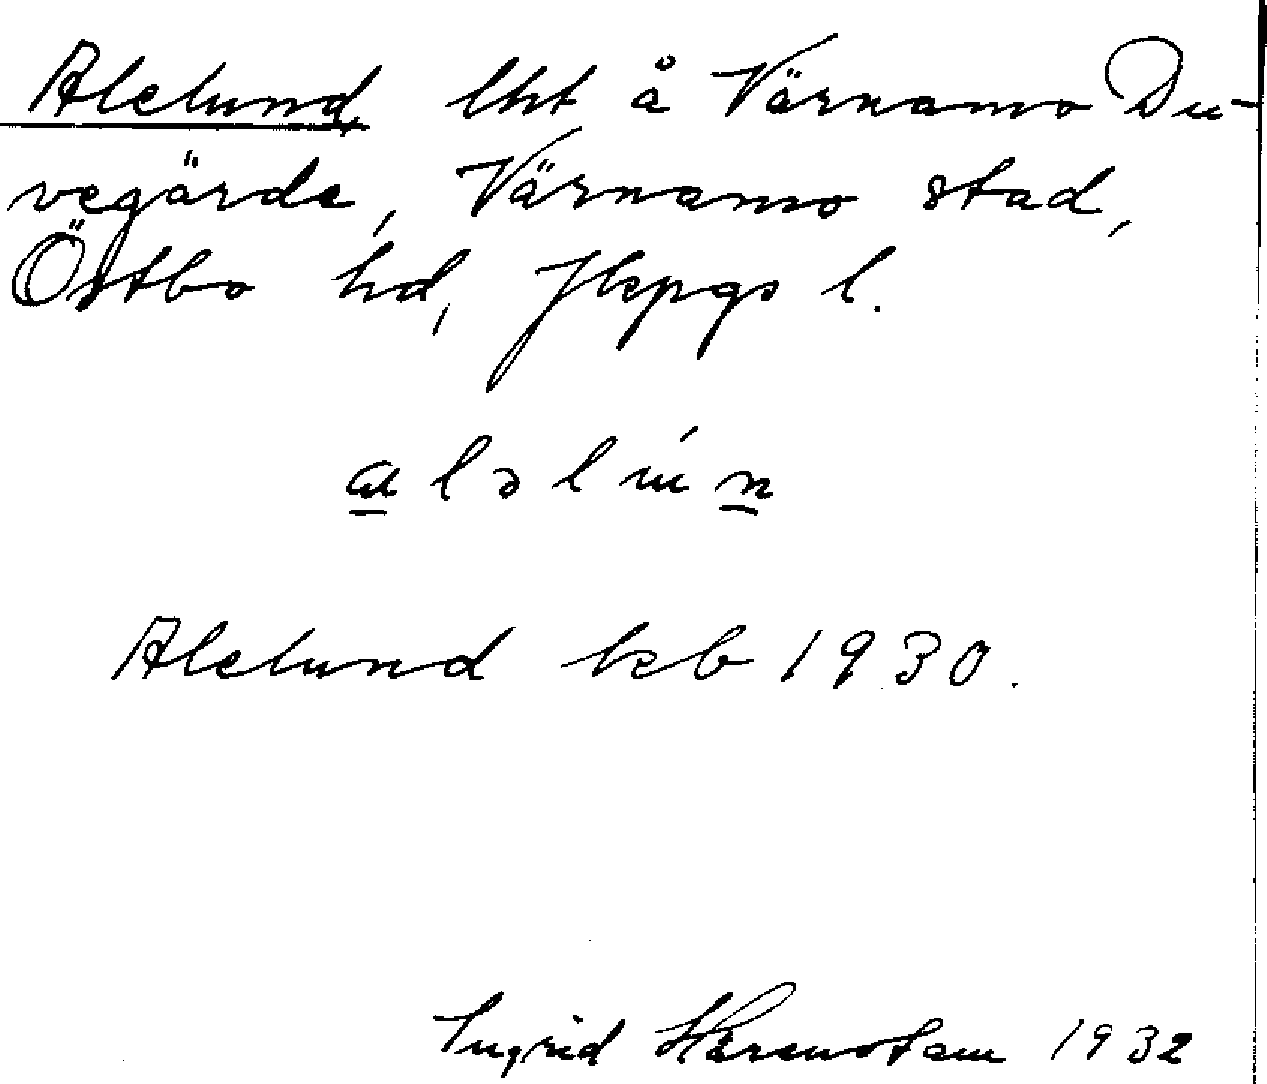 Alelund, lht å Värnamo Du-
vegärde, Värnamo stad,
Östbo hd, Jkpgs l.
aləlún
Alelund kb 1930.
Ingrid 1932